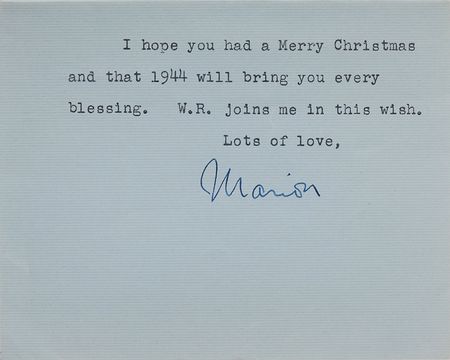 I hope you had a Merry Christmas
and that 1944 will bring you every
blessing. W.R. joins me in this wish.
Lots of love,
Marion